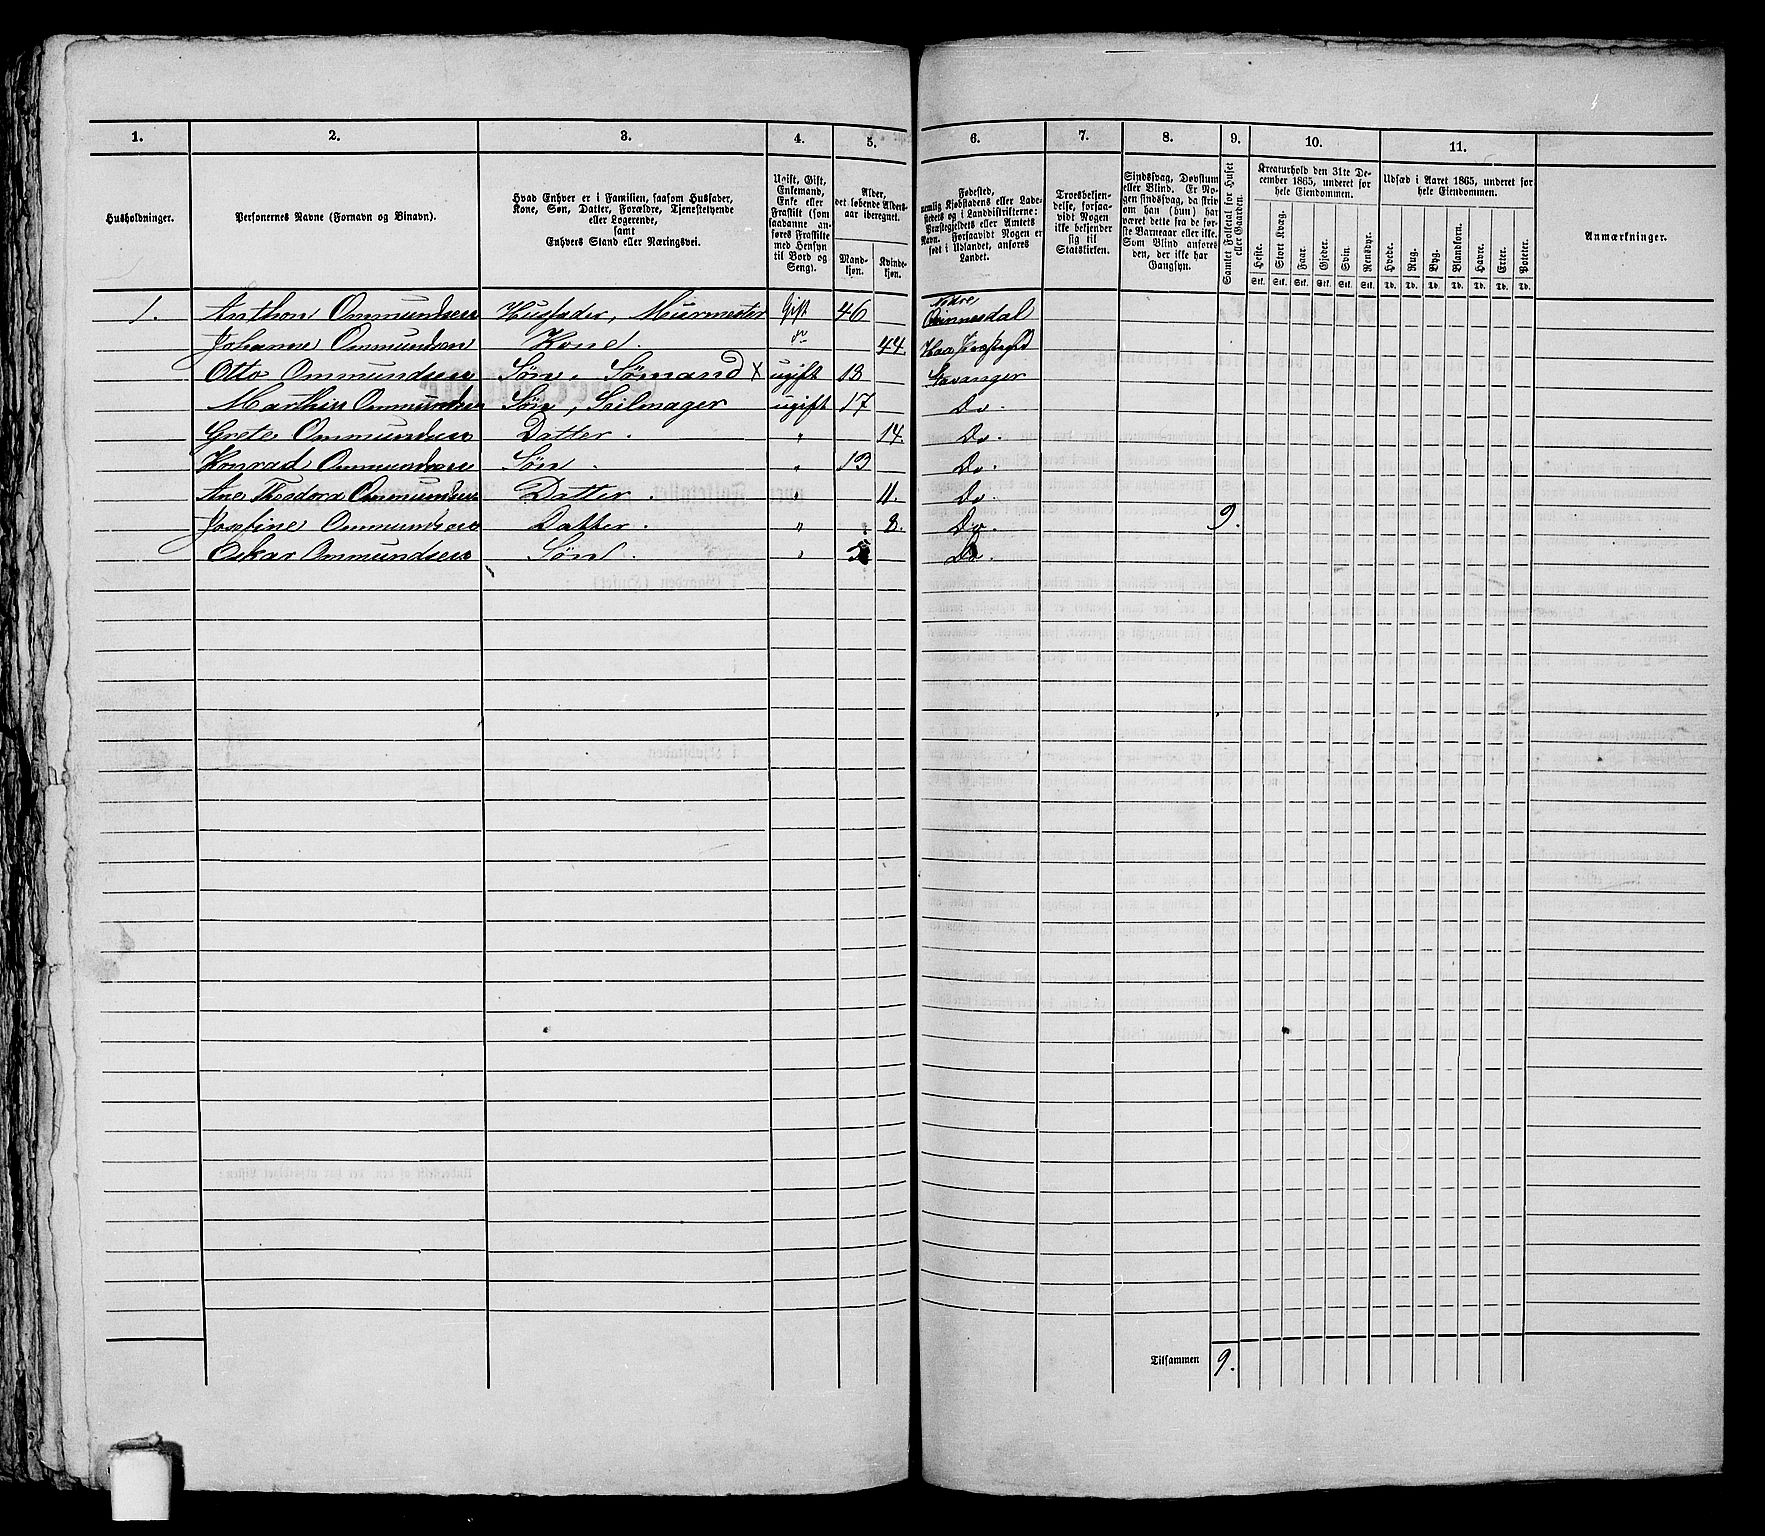 1. 2. 3. 4. 5. 6. 7. 8. 9. 10. 11.
Husholdninger.
Personernes Navne (Fornavn og Binavn).
Hvad Enhver er i Familien, saasom Husfader,
Kone, Søn, Datter, Forældre, Tjenestetyende
eller Logerende,
samt
Enhvers Stand eller Næringsvei.
Ugift, Gift,
Enkemand,
Enke eller
Fraskilt (som
saadanne an-
føres Fraskilte
med Hensyn
til Bord og
Seng).
Alder,
det løbende Alders-
aar iberegnet.
Mand-
kjøn.
Kvinde-
kjøn.
Fødested,
nemlig Kjøbstadens eller Lade-
stedets og i Landdistrikterne:
Præstegjeldets eller Amtets
Navn. Forsaavidt Nogen er
født i Udlandet, anføres
Landet.
Troesbekjen-
delse, forsaa-
vidt Nogen
ikke bekjender
sig til
Statskirken.
Sindssvag, Døvstum
eller Blind. Er No-
gen sindssvag, da skriv
om han (hun) har
været dette fra de før-
ste Barneaar eller ikke.
Som Blind anføres
den, der ikke har
Gangsyn.
Samlet Folketal for Huset
eller Gaarden.
Kreaturhold den 31te De-
cember 1865, underet for
hele Eiendommen.
Heste. Stort Kvæg. Faar. Gjeder. Svin. Rensdyr.
Stk. Stk. Stk. Stk. Stk. Stk.
Udsæd i Aaret 1865, underet for
hele Eiendommen.
Hvede. Rug. Byg. Blandkorn. Havre. Erter. Poteter.
Td. Td. Td. Td. Td. Td. Td.
Anmærkninger.
1. Anthon Ommundsen Husfader, Muurmester Gift 46 Nedre Qvinnesdal
Johanne Ommundsen Kone. do 44. Haa Præstegjld
Otto Ommundsen Søn, Sømand X ugift 18 Stavanger
Marthin Ommundsen Søn, Seilmager ugift 17 Do.
Grete Ommundsen Datter. " 14. Do.
Konrad Ommundsen Søn. " 13 Do.
Ane Theodora Ommundsen Datter. " 11. Do.
Josefine Ommundsen Datter. " 8. Do. 9.
Oskar Ommundsen Søn. " 5 Do.
Tilsammen 9.